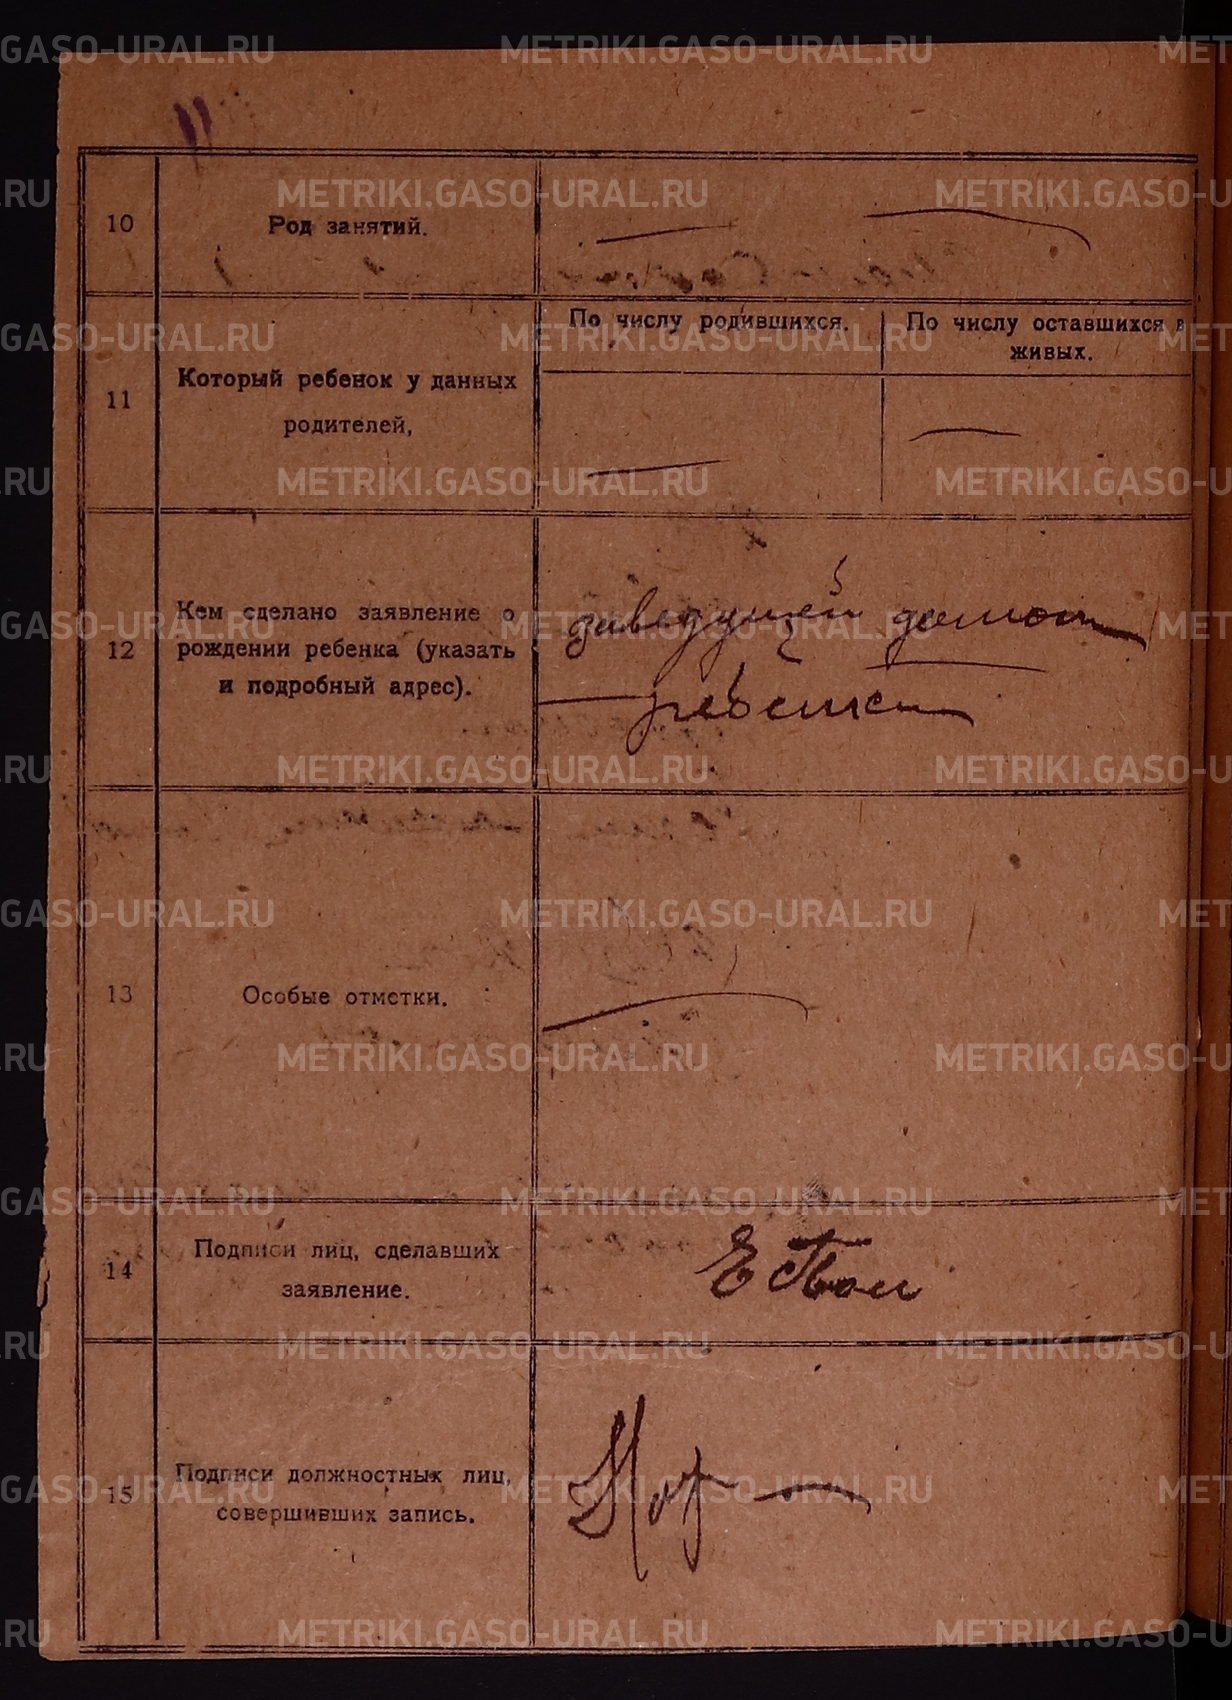 10
Род занятий.
11
Который ребенок у данных
родителей,
По числу родившихся.
По числу оставшихся в
живых.
12
Кем сделано заявление о
рождении ребенка (указать
и подробный адрес).
заведущей домом
ребенка
13
Особые отметки.
14
Подписи лиц, сделавших
заявление.
15
Подписи должностных лиц,
совершивших запись.
METRIKI.GASO-URAL.RU